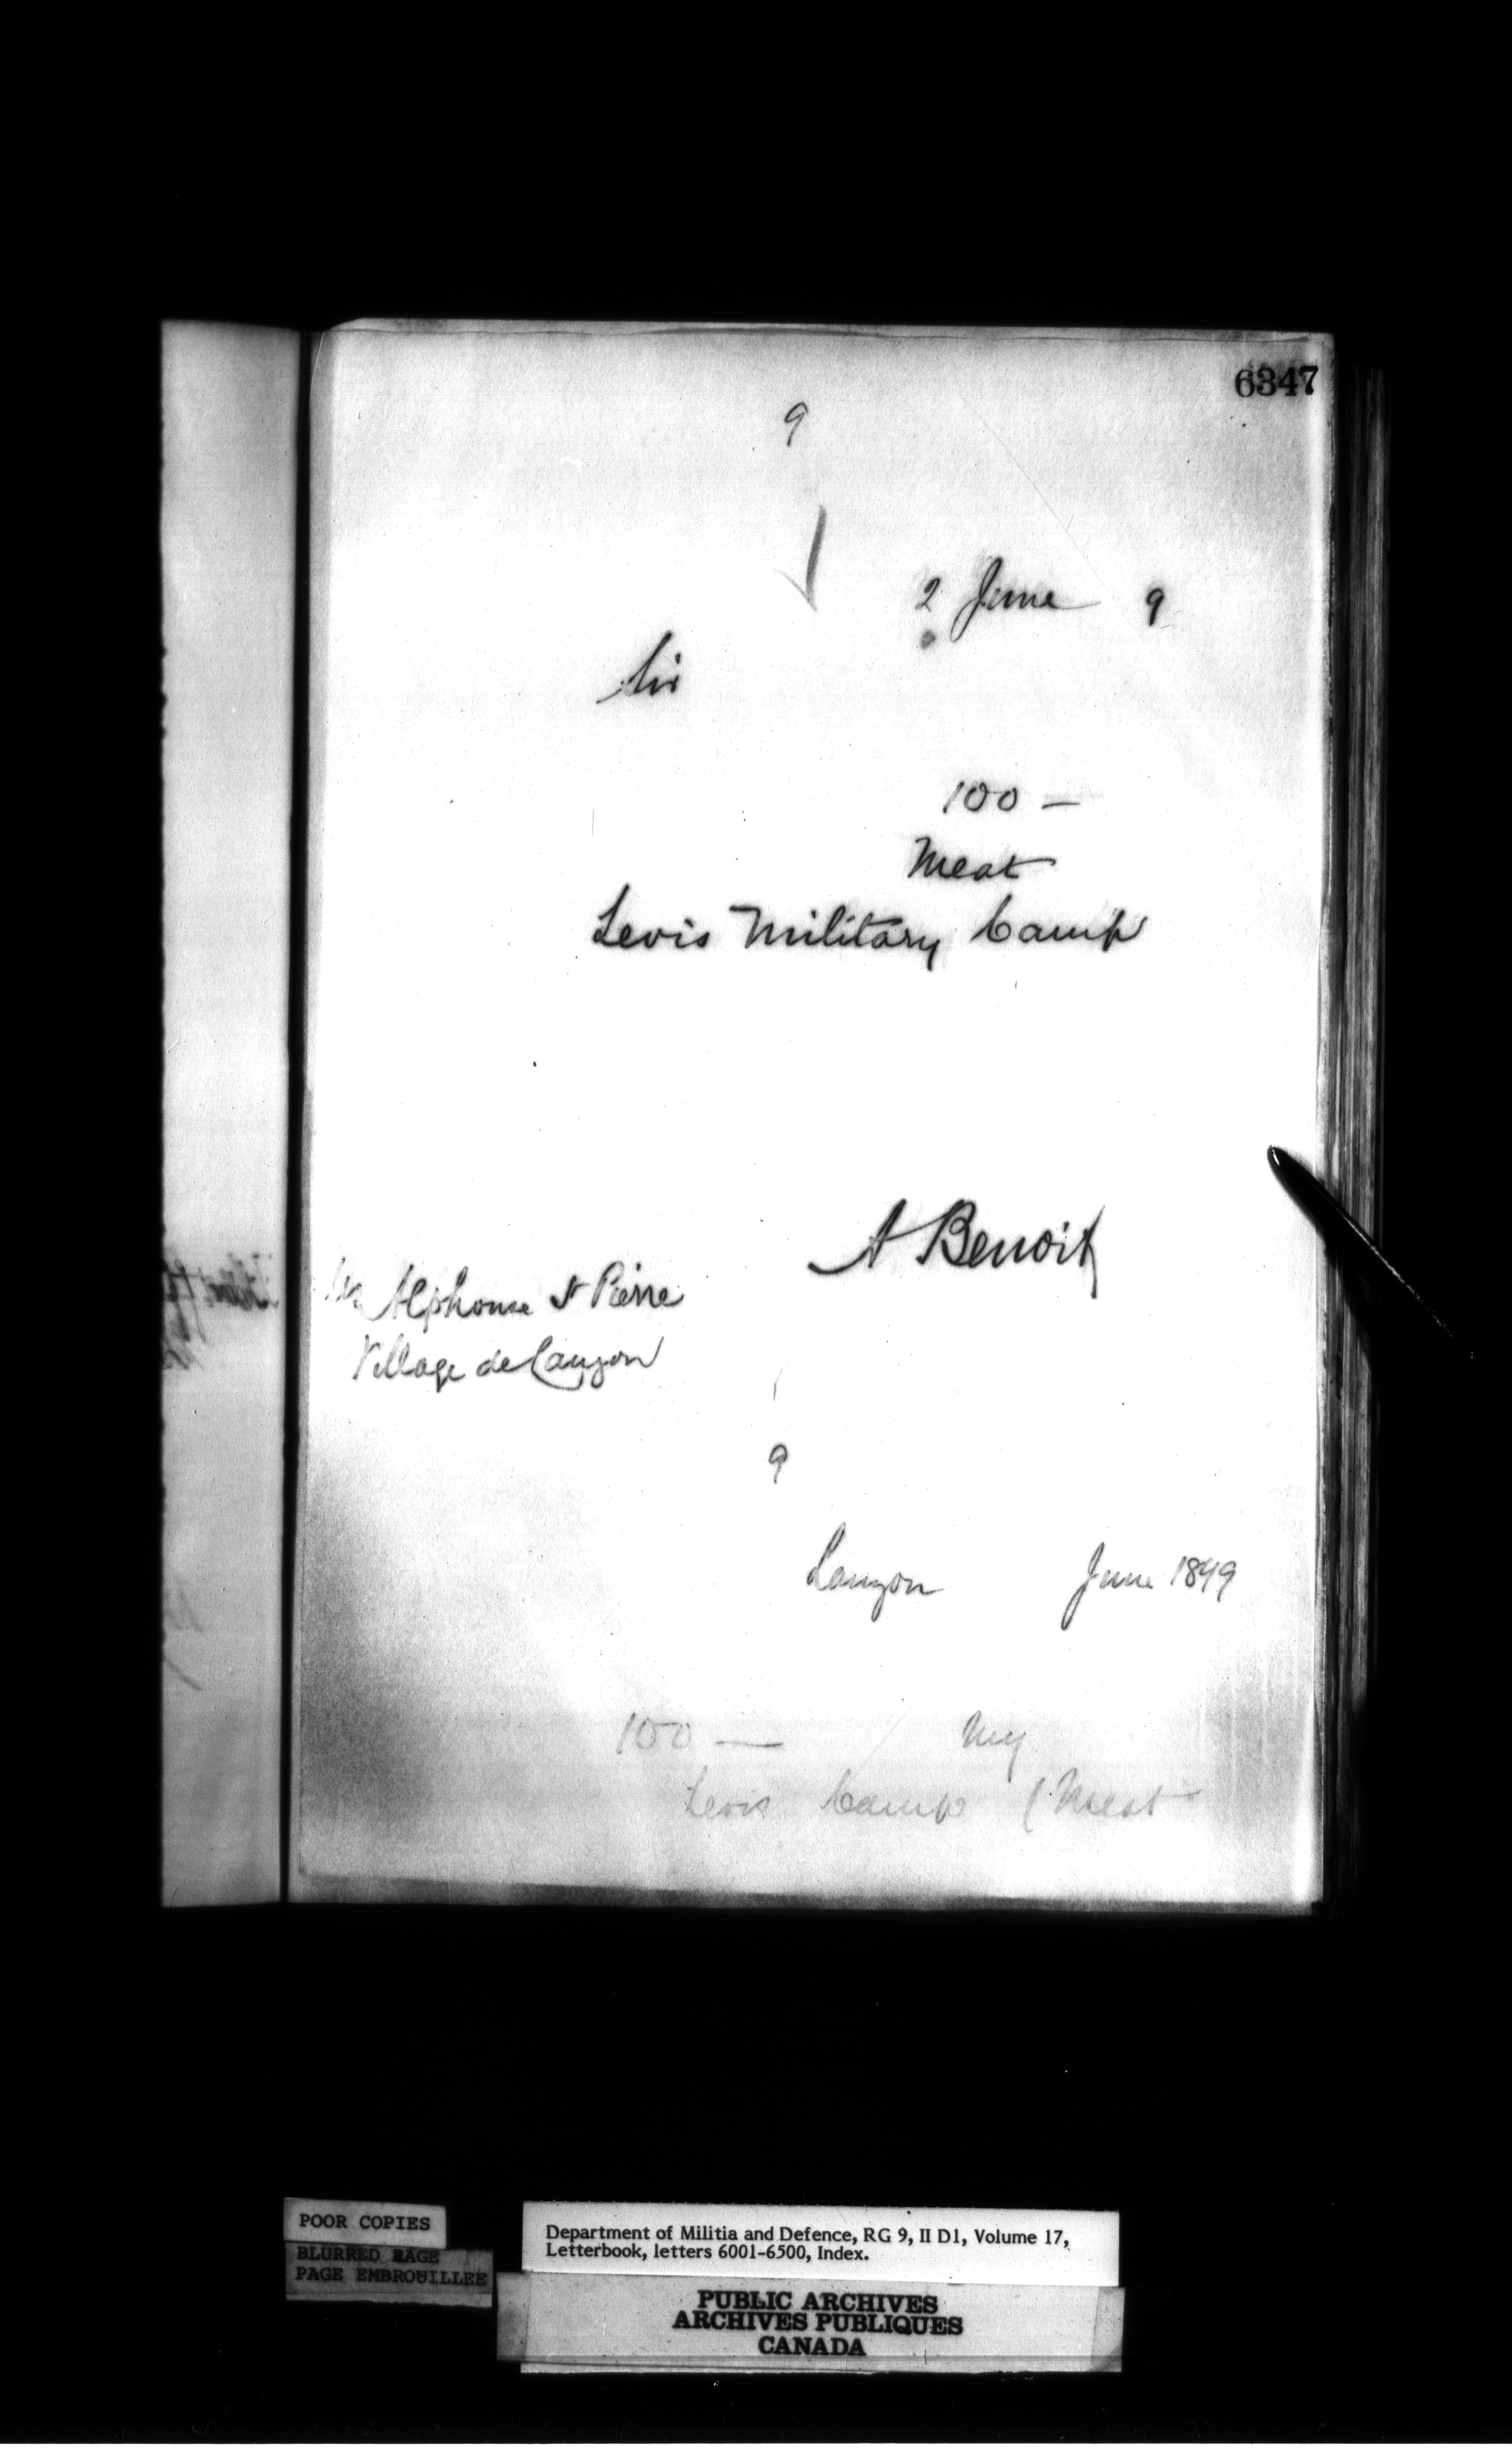 6347
9
2 June 9
Sir
100 —
Meat
Levis Military Camp
A Benoit
Mr Alphonse St Pierre
Village de Lauzon
9
Lauzon June 1899
100 — My
Levis Camp (Meat
POOR COPIES
BLURRED PAGE
PAGE EMBROUILLEE
Department of Militia and Defence, RG 9, II D1, Volume 17,
Letterbook, letters 6001-6500, Index.
PUBLIC ARCHIVES
ARCHIVES PUBLIQUES
CANADA